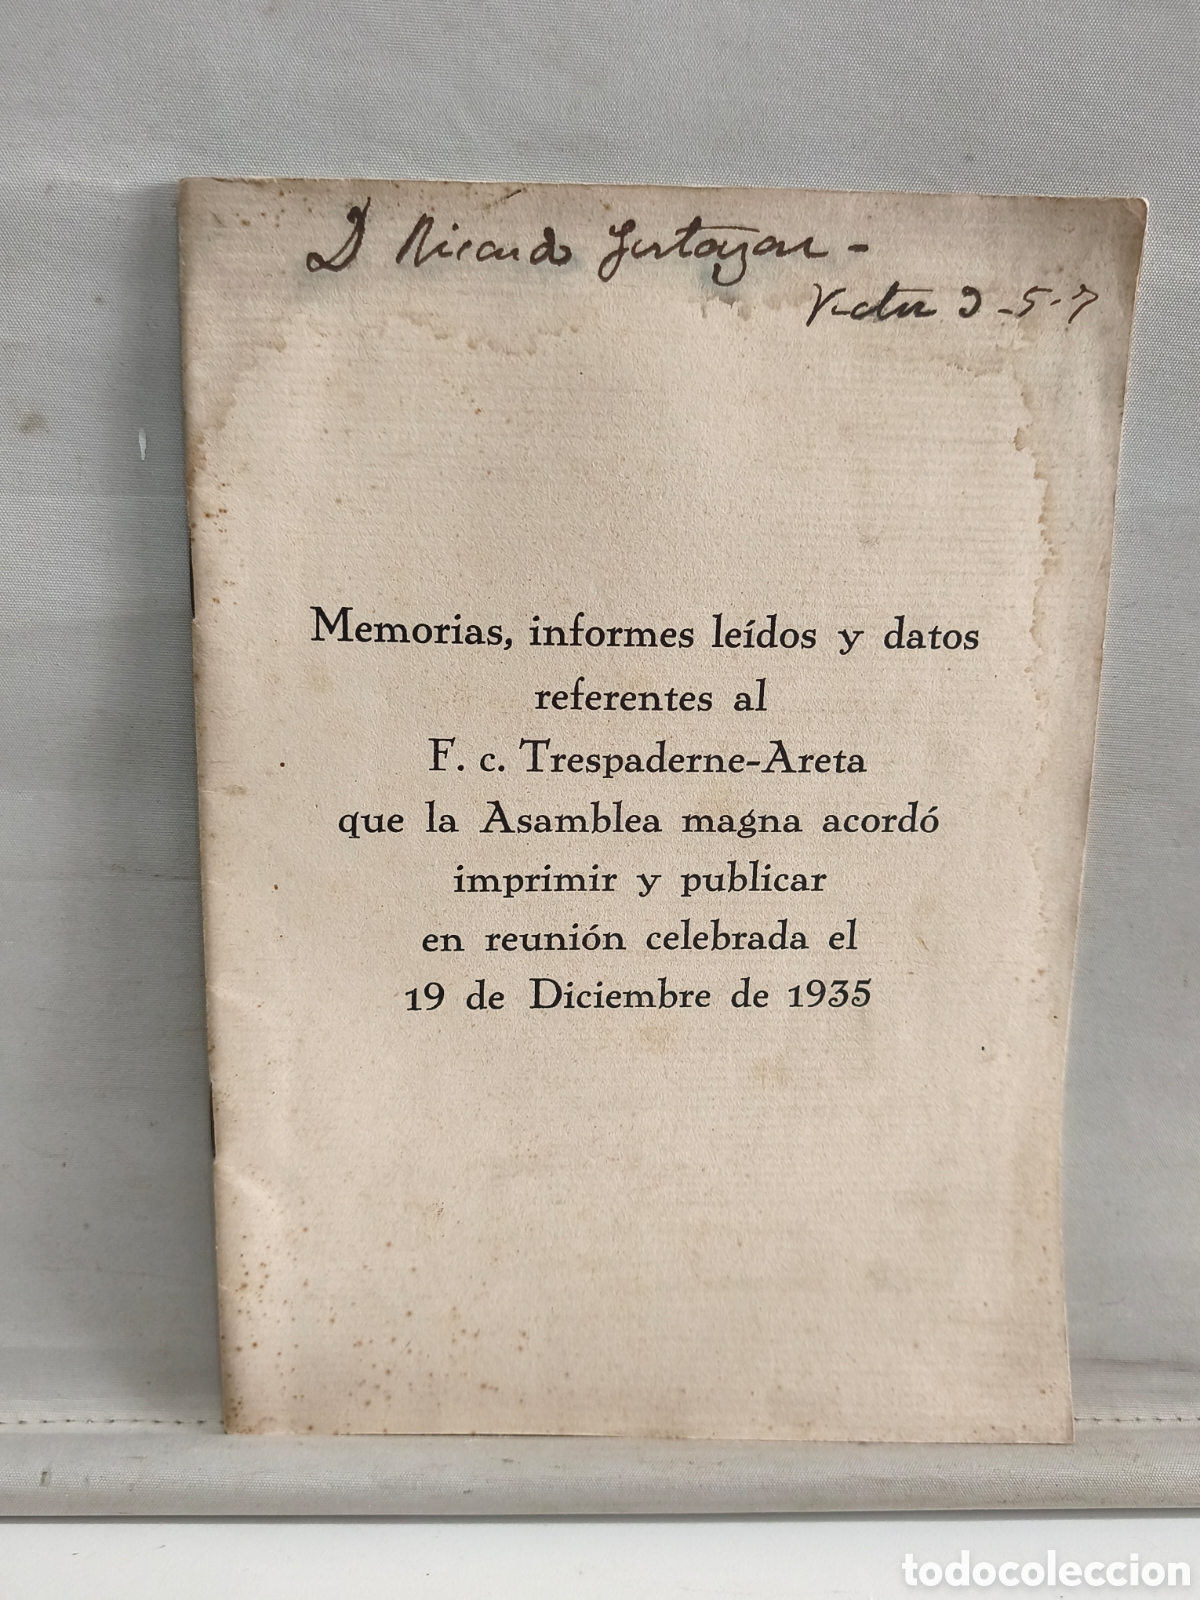 D Ricardo
Victor 9-5-7
Memorias, informes leídos y datos
referentes al
F. c. Trespaderne-Areta
que la Asamblea magna acordó
imprimir y publicar
en reunión celebrada el
19 de Diciembre de 1935
todocoleccion